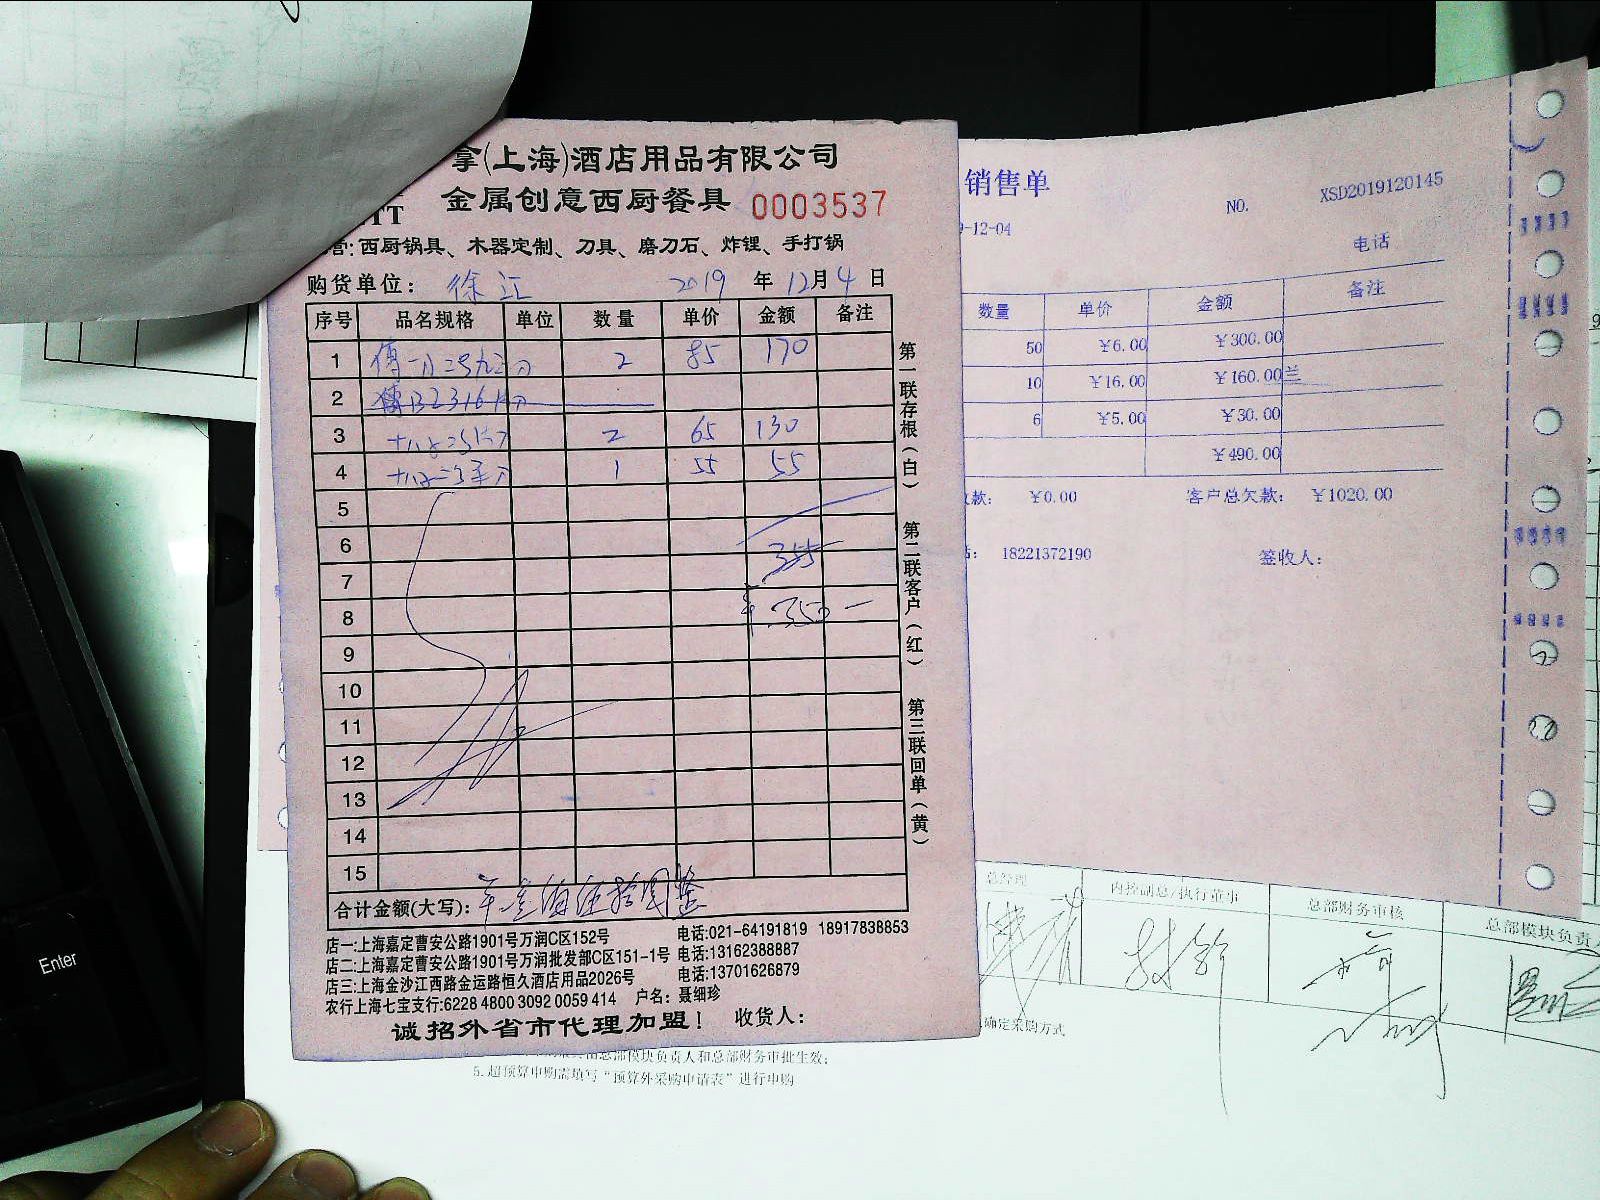 拿(上海)酒店用品有限公司
金属创意西厨餐具 0003537
营:西厨锅具、木器定制、刀具、磨刀石、炸锂、手打锅
购货单位: 徐汇 2019 年 12月 4 日
序号 品名规格 单位 数量 单价 金额 备注
1 2 85 170
2
3 2 65 130
4 1 55 55
5
6 355
7
8 ¥350—
9
10
11
12
13
14
15
合计金额(大写):
店一:上海嘉定曹安公路1901号万润C区152号 电话:021-64191819 18917838853
店二:上海嘉定曹安公路1901号万润批发部C区151-1号 电话:13162388887
店三:上海金沙江西路金运路恒久酒店用品2026号 电话:13701626879
农行上海七宝支行:6228 4800 3092 0059 414 户名:聂细珍
诚招外省市代理加盟! 收货人:
第一联存根(白)
第二联客户(红)
第三联回单(黄)
销售单
NO. XSD2019120145
-12-04
电话
数量 单价 金额 备注
50 ¥6.00 ¥300.00
10 ¥16.00 ¥160.00
6 ¥5.00 ¥30.00
¥490.00
款: ¥0.00 客户总欠款: ¥1020.00
18221372190 签收人:
总经理 内控副总/执行董事 总部财务审核 总部模块负责人
确定采购方式
总部模块负责人和总部财务审批生效;
5.超预算申购需填写“预算外采购申请表”进行申购
Enter